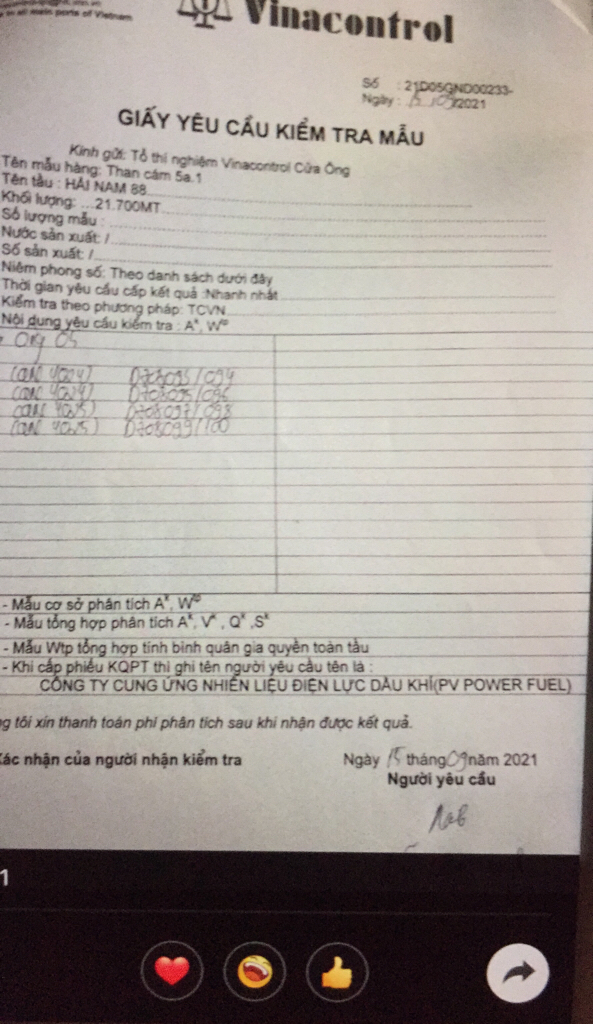 in all main ports of Vietnam
Vinacontrol
Số : 21D05GND00233-
Ngày : 15/09/2021
GIẤY YÊU CẦU KIỂM TRA MẪU
Kính gửi: Tổ thí nghiệm Vinacontrol Cửa Ông
Tên mẫu hàng: Than cám 5a.1
Tên tàu : HẢI NAM 88
Khối lượng: ...21.700MT
Số lượng mẫu :
Nước sản xuất: /
Số sản xuất: /
Niêm phong số: Theo danh sách dưới đây
Thời gian yêu cầu cấp kết quả :Nhanh nhất
Kiểm tra theo phương pháp: TCVN
Nội dung yêu cầu kiểm tra : Aᵏ, Wᵗᵖ
D708093/094
D708095/096
D708097/098
D708099/100
- Mẫu cơ sở phân tích Aᵏ, Wᵗᵖ
- Mẫu tổng hợp phân tích Aᵏ, Vᵏ , Qᵏ ,Sᵏ
- Mẫu Wtp tổng hợp tính bình quân gia quyền toàn tàu
- Khi cấp phiếu KQPT thì ghi tên người yêu cầu tên là :
CÔNG TY CUNG ỨNG NHIÊN LIỆU ĐIỆN LỰC DẦU KHÍ(PV POWER FUEL)
ng tôi xin thanh toán phí phân tích sau khi nhận được kết quả.
Xác nhận của người nhận kiểm tra
Ngày 15 tháng 09 năm 2021
Người yêu cầu
1